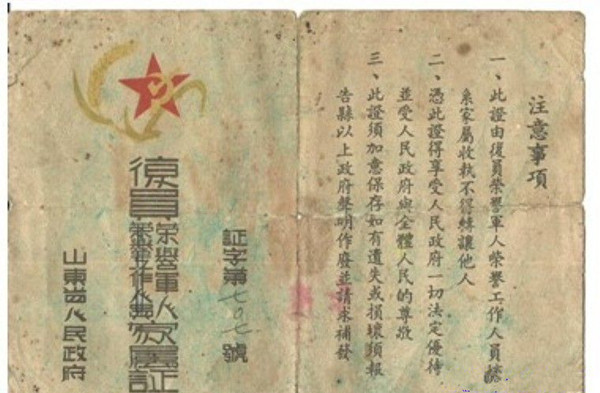 注意事項
一、此證由復員榮譽軍人榮譽工作人員嫡
系家屬收執不得轉讓他人
二、憑此證得享受人民政府一切法定優待
並受人民政府與全體人民的尊敬
三、此證須加意保存如有遺失或損壞須報
告縣以上政府聲明作廢並請求補發
証字第七〇七號
復員榮譽軍人
榮譽工作人員
家屬証
山東省人民政府